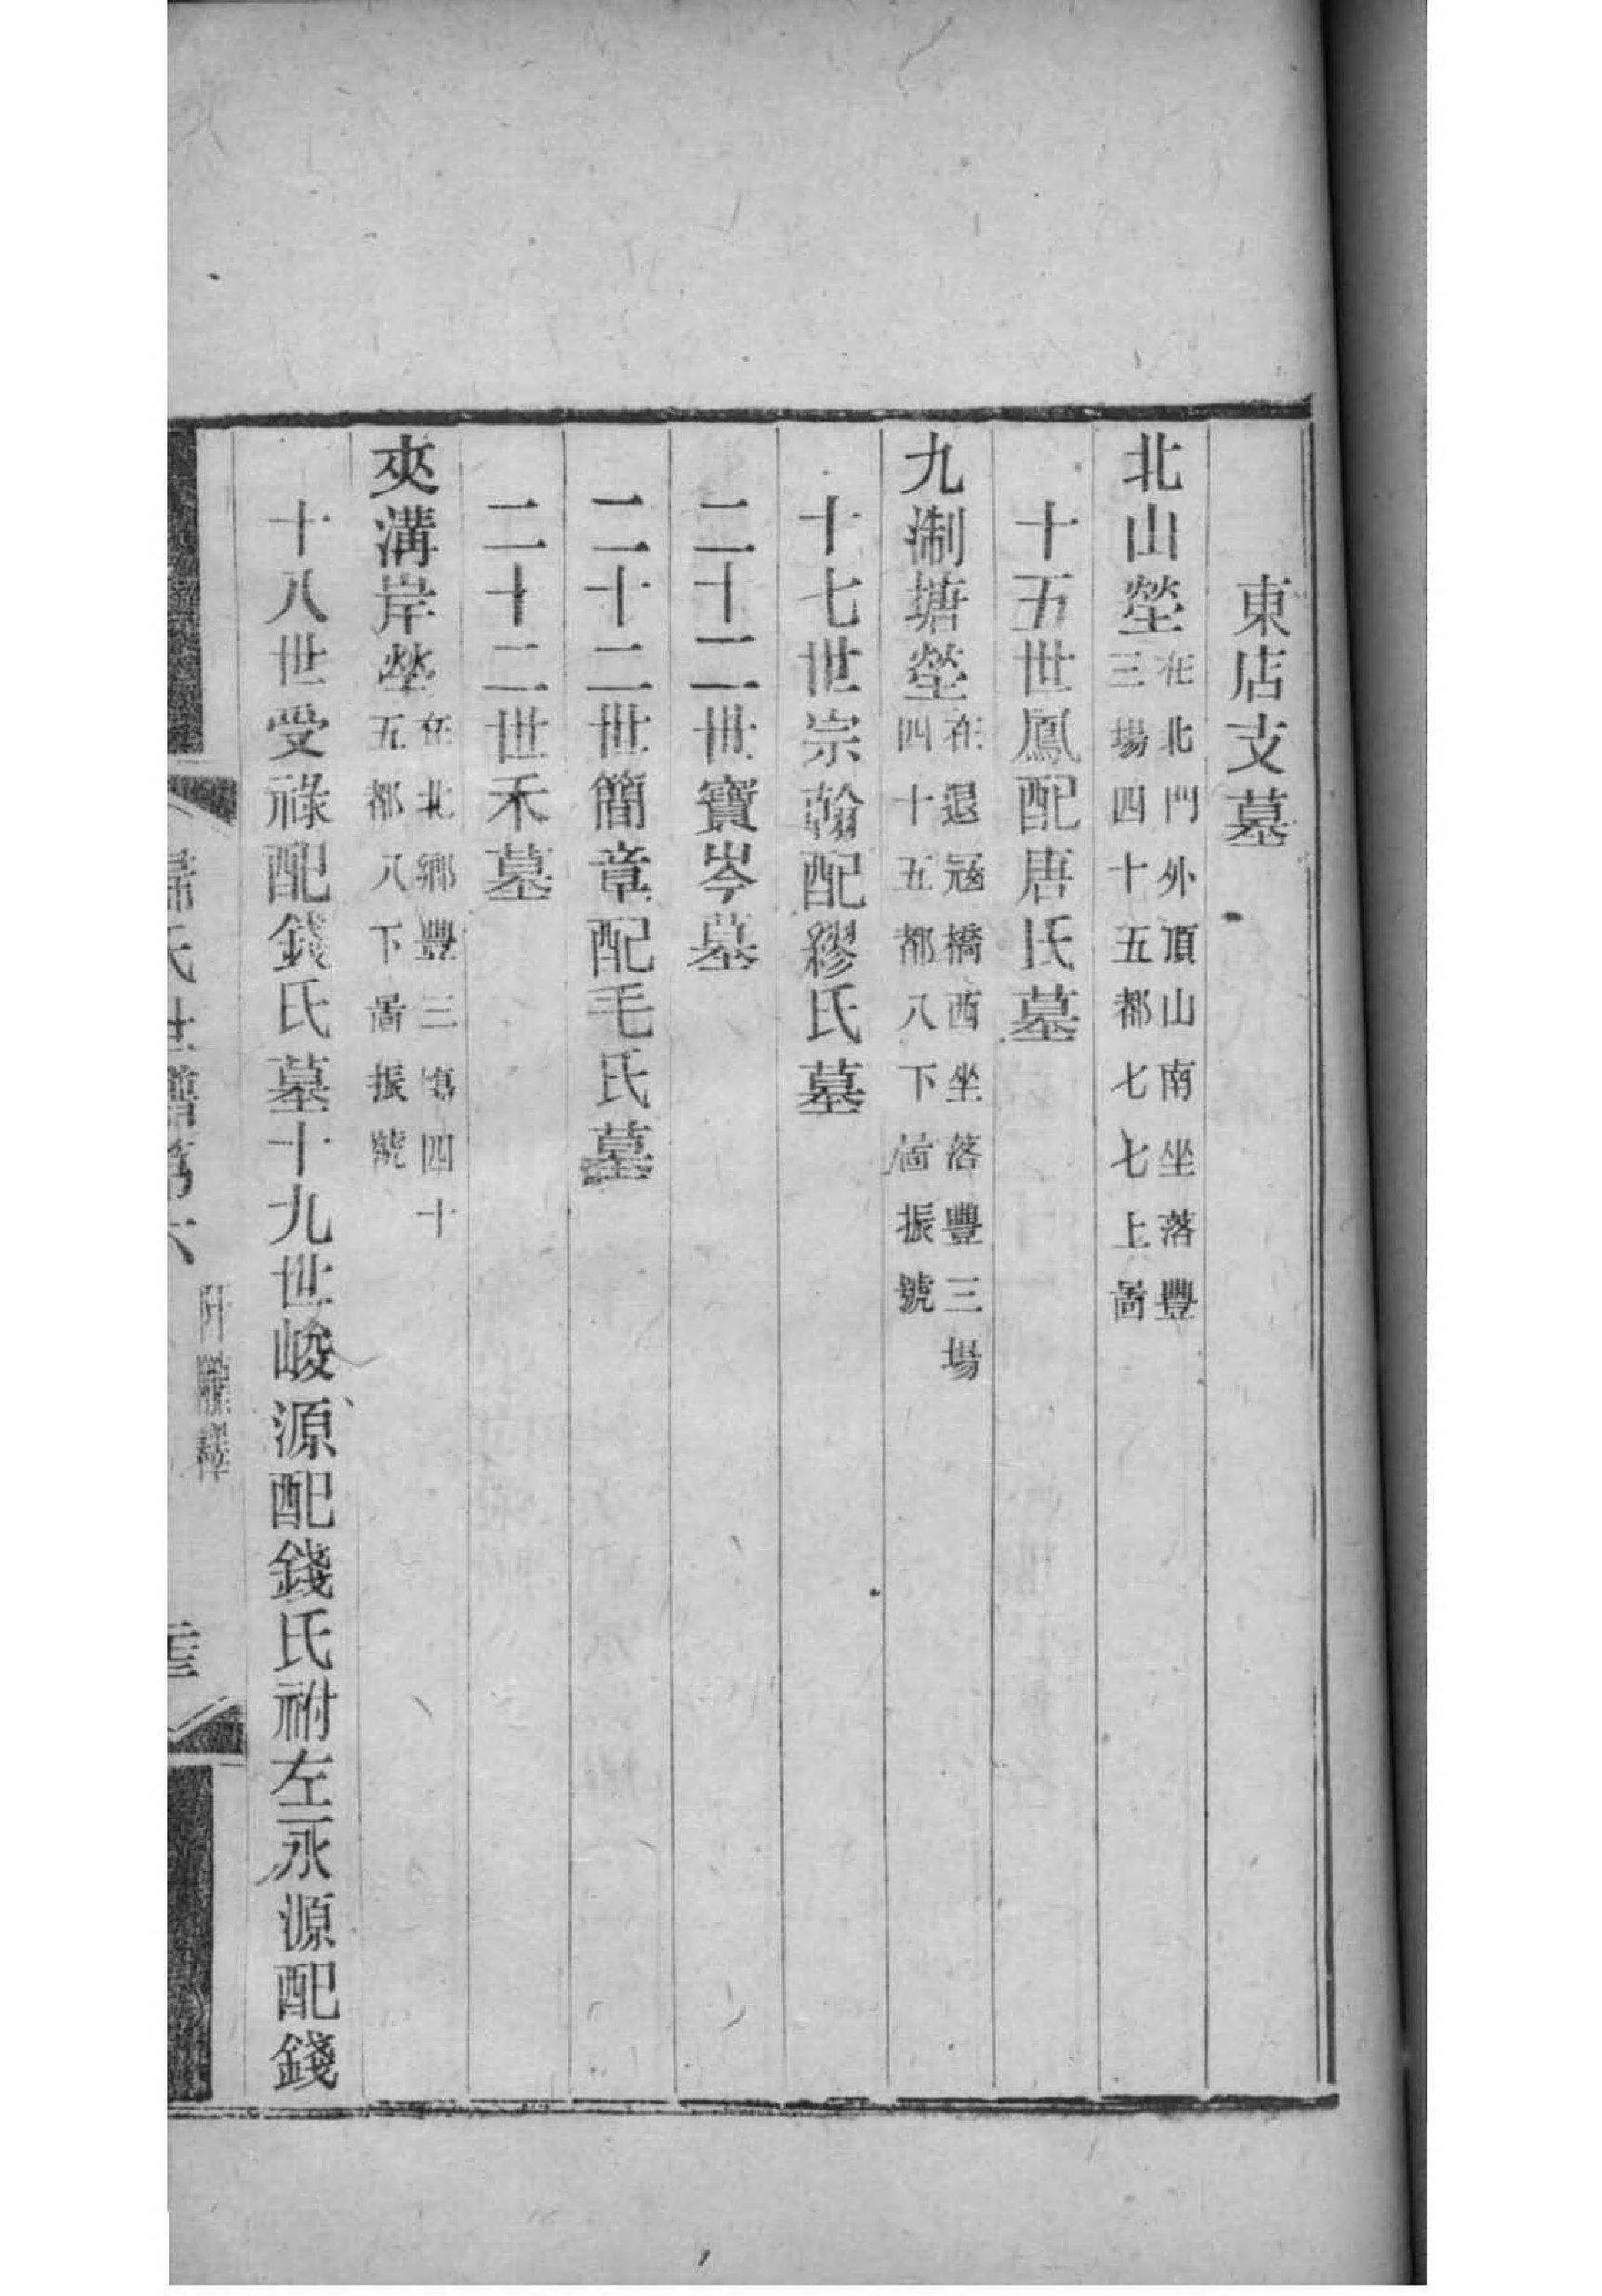 東店支墓
北山塋在北門外頂山南坐落豐三場四十五都七七上啚
十五世鳳配唐氏墓
九淛塘塋在退冦橋西坐落豐三場四十五都八下啚振號
十七世宗翰配繆氏墓
二十二世寶岑墓
二十二世簡章配毛氏墓
二十二世禾墓
夾溝岸塋在北鄉豐三塲四十五都八下啚振號
十八世受祿配錢氏墓十九世峻源配錢氏祔左永源配錢
歸氏世譜第六